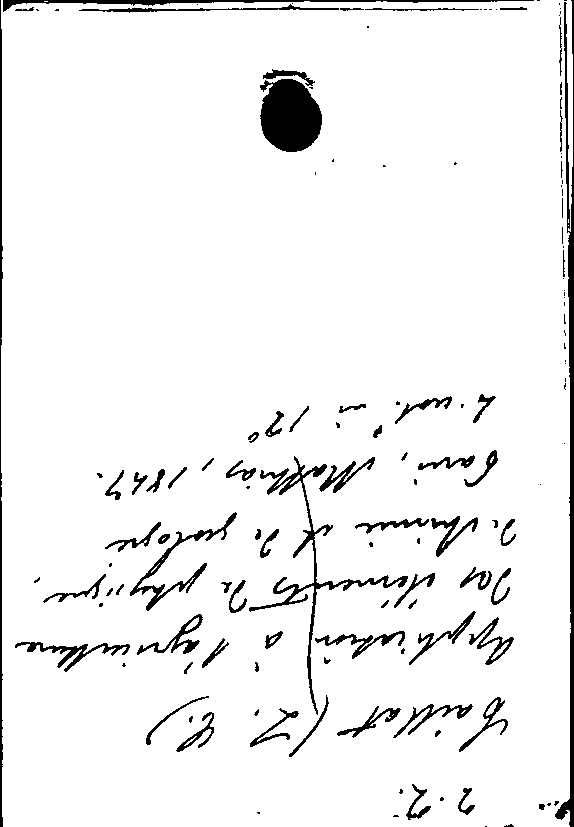 Caillat (J. C.)
Application à l'agriculture
des éléments de physique,
de chimie et de géologie
Paris, Mathias, 1847.
4 vol. in 12°